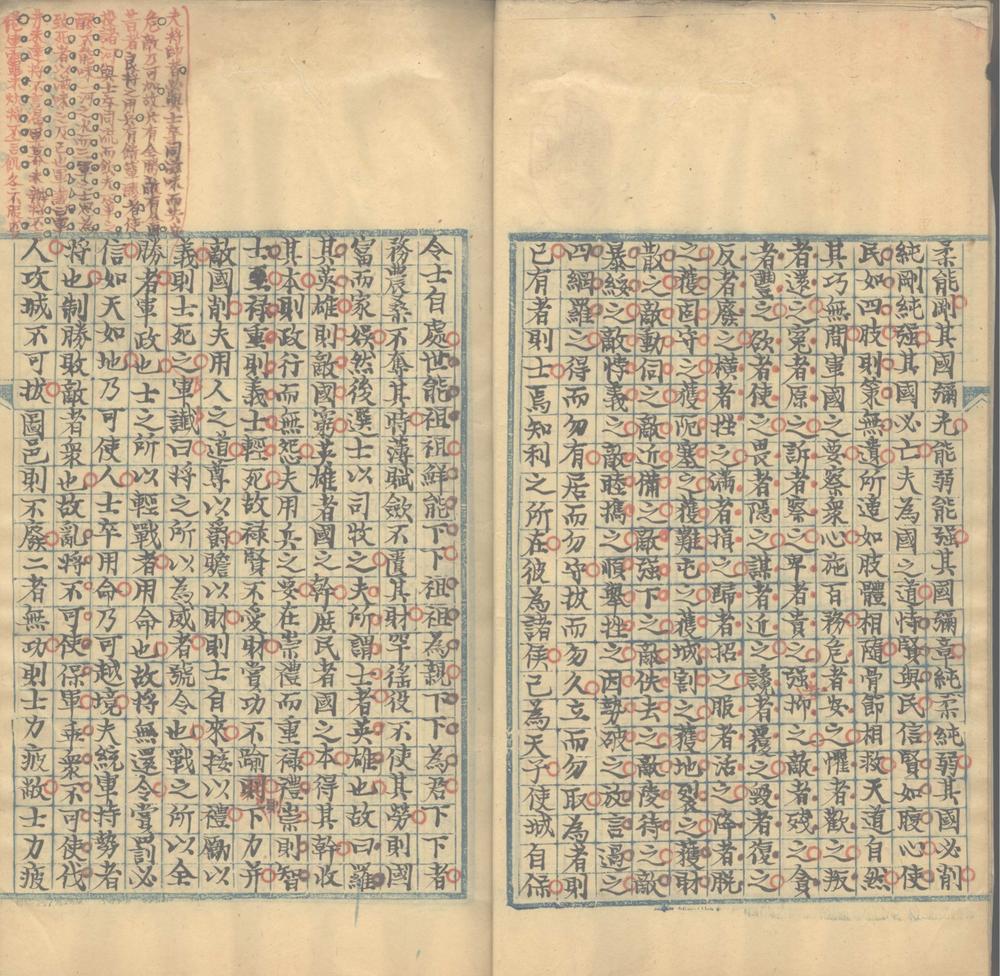 柔能剛其國彌光能弱能强其國彌章純柔純弱其國必削
純剛純强其國必亡夫為國之道恃賢與民信賢如腹心使
民如四肢則策無遺所適如肢體相隨骨節相救天道自然
其巧無間軍國之要察衆心施百務危者安之懼者歡之叛
者還之寃者原之訴者察之卑者貴之强抑之敵者殘之貪
者豐之欲者使之畏者隱之謀者近之讒者覆之毀者復之
反者廢之橫者挫之滿者損之歸者招之服者活之降者脫
之獲固守之獲阨塞之獲難屯之獲城割之獲地裂之獲財
散之敵動伺之敵近備之敵强下之敵佚去之敵陵待之敵
暴綏之敵悖義之敵睦攜之順舉挫之因勢破之放言過之
四網羅之得而勿有居而勿守拔而勿久立而勿取為者則
己有者則士焉知利之所在彼為諸侯己為天子使城自保
夫將帥者必與士卒同滋味而共安
危敵乃可加故兵有全勝敵有全
昔者良將之用兵有饋簞醪者使
投諸河與士卒同流而飲夫一簞之
醪不能味一河之水而三軍之士思為
致死者以滋味之及己也軍讖曰軍
井未達將不言渴軍幕未辦將不
倦軍竈未炊將不言飢冬不服裘
令士自處世能祖祖鮮能下下祖祖為親下下為君下下者
務農桑不奪其時薄賦斂不匱其財罕徭役不使其勞則國
富而家娛然後選士以司牧之夫所謂士者英雄也故曰羅
其英雄則敵國窮英雄者國之幹庶民者國之本得其幹收
其本則政行而無怨夫用兵之要在崇禮而重祿禮崇則智
士至祿重則義士輕死故祿賢不愛財賞功不踰則下力并
敵國削夫用人之道尊以爵贍以財則士自來接以禮勵以
義則士死之軍讖曰將之所以為威者號令也戰之所以全
勝者軍政也士之所以輕戰者用命也故將無還令賞罰必
信如天如地乃可使人士卒用命乃可越境夫統軍持勢者
將也制勝敗敵者衆也故亂將不可使保軍乖衆不可使伐
人攻城不可拔圖邑則不廢二者無功則士力疲敝士力疲